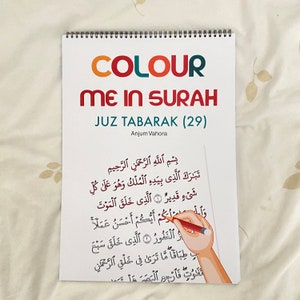 COLOUR
ME IN SURAH
JUZ TABARAK (29)
Anjum Vahora
بِسْمِ اللَّهِ الرَّحْمَٰنِ الرَّحِيمِ
تَبَارَكَ الَّذِي بِيَدِهِ الْمُلْكُ وَهُوَ عَلَىٰ كُلِّ
شَيْءٍ قَدِيرٌ ۝ الَّذِي خَلَقَ الْمَوْتَ
أَيُّكُمْ أَحْسَنُ عَمَلًا
الْغَفُورُ ۝ الَّذِي خَلَقَ سَبْعَ
طِبَاقًا مَّا تَرَىٰ فِي خَلْقِ